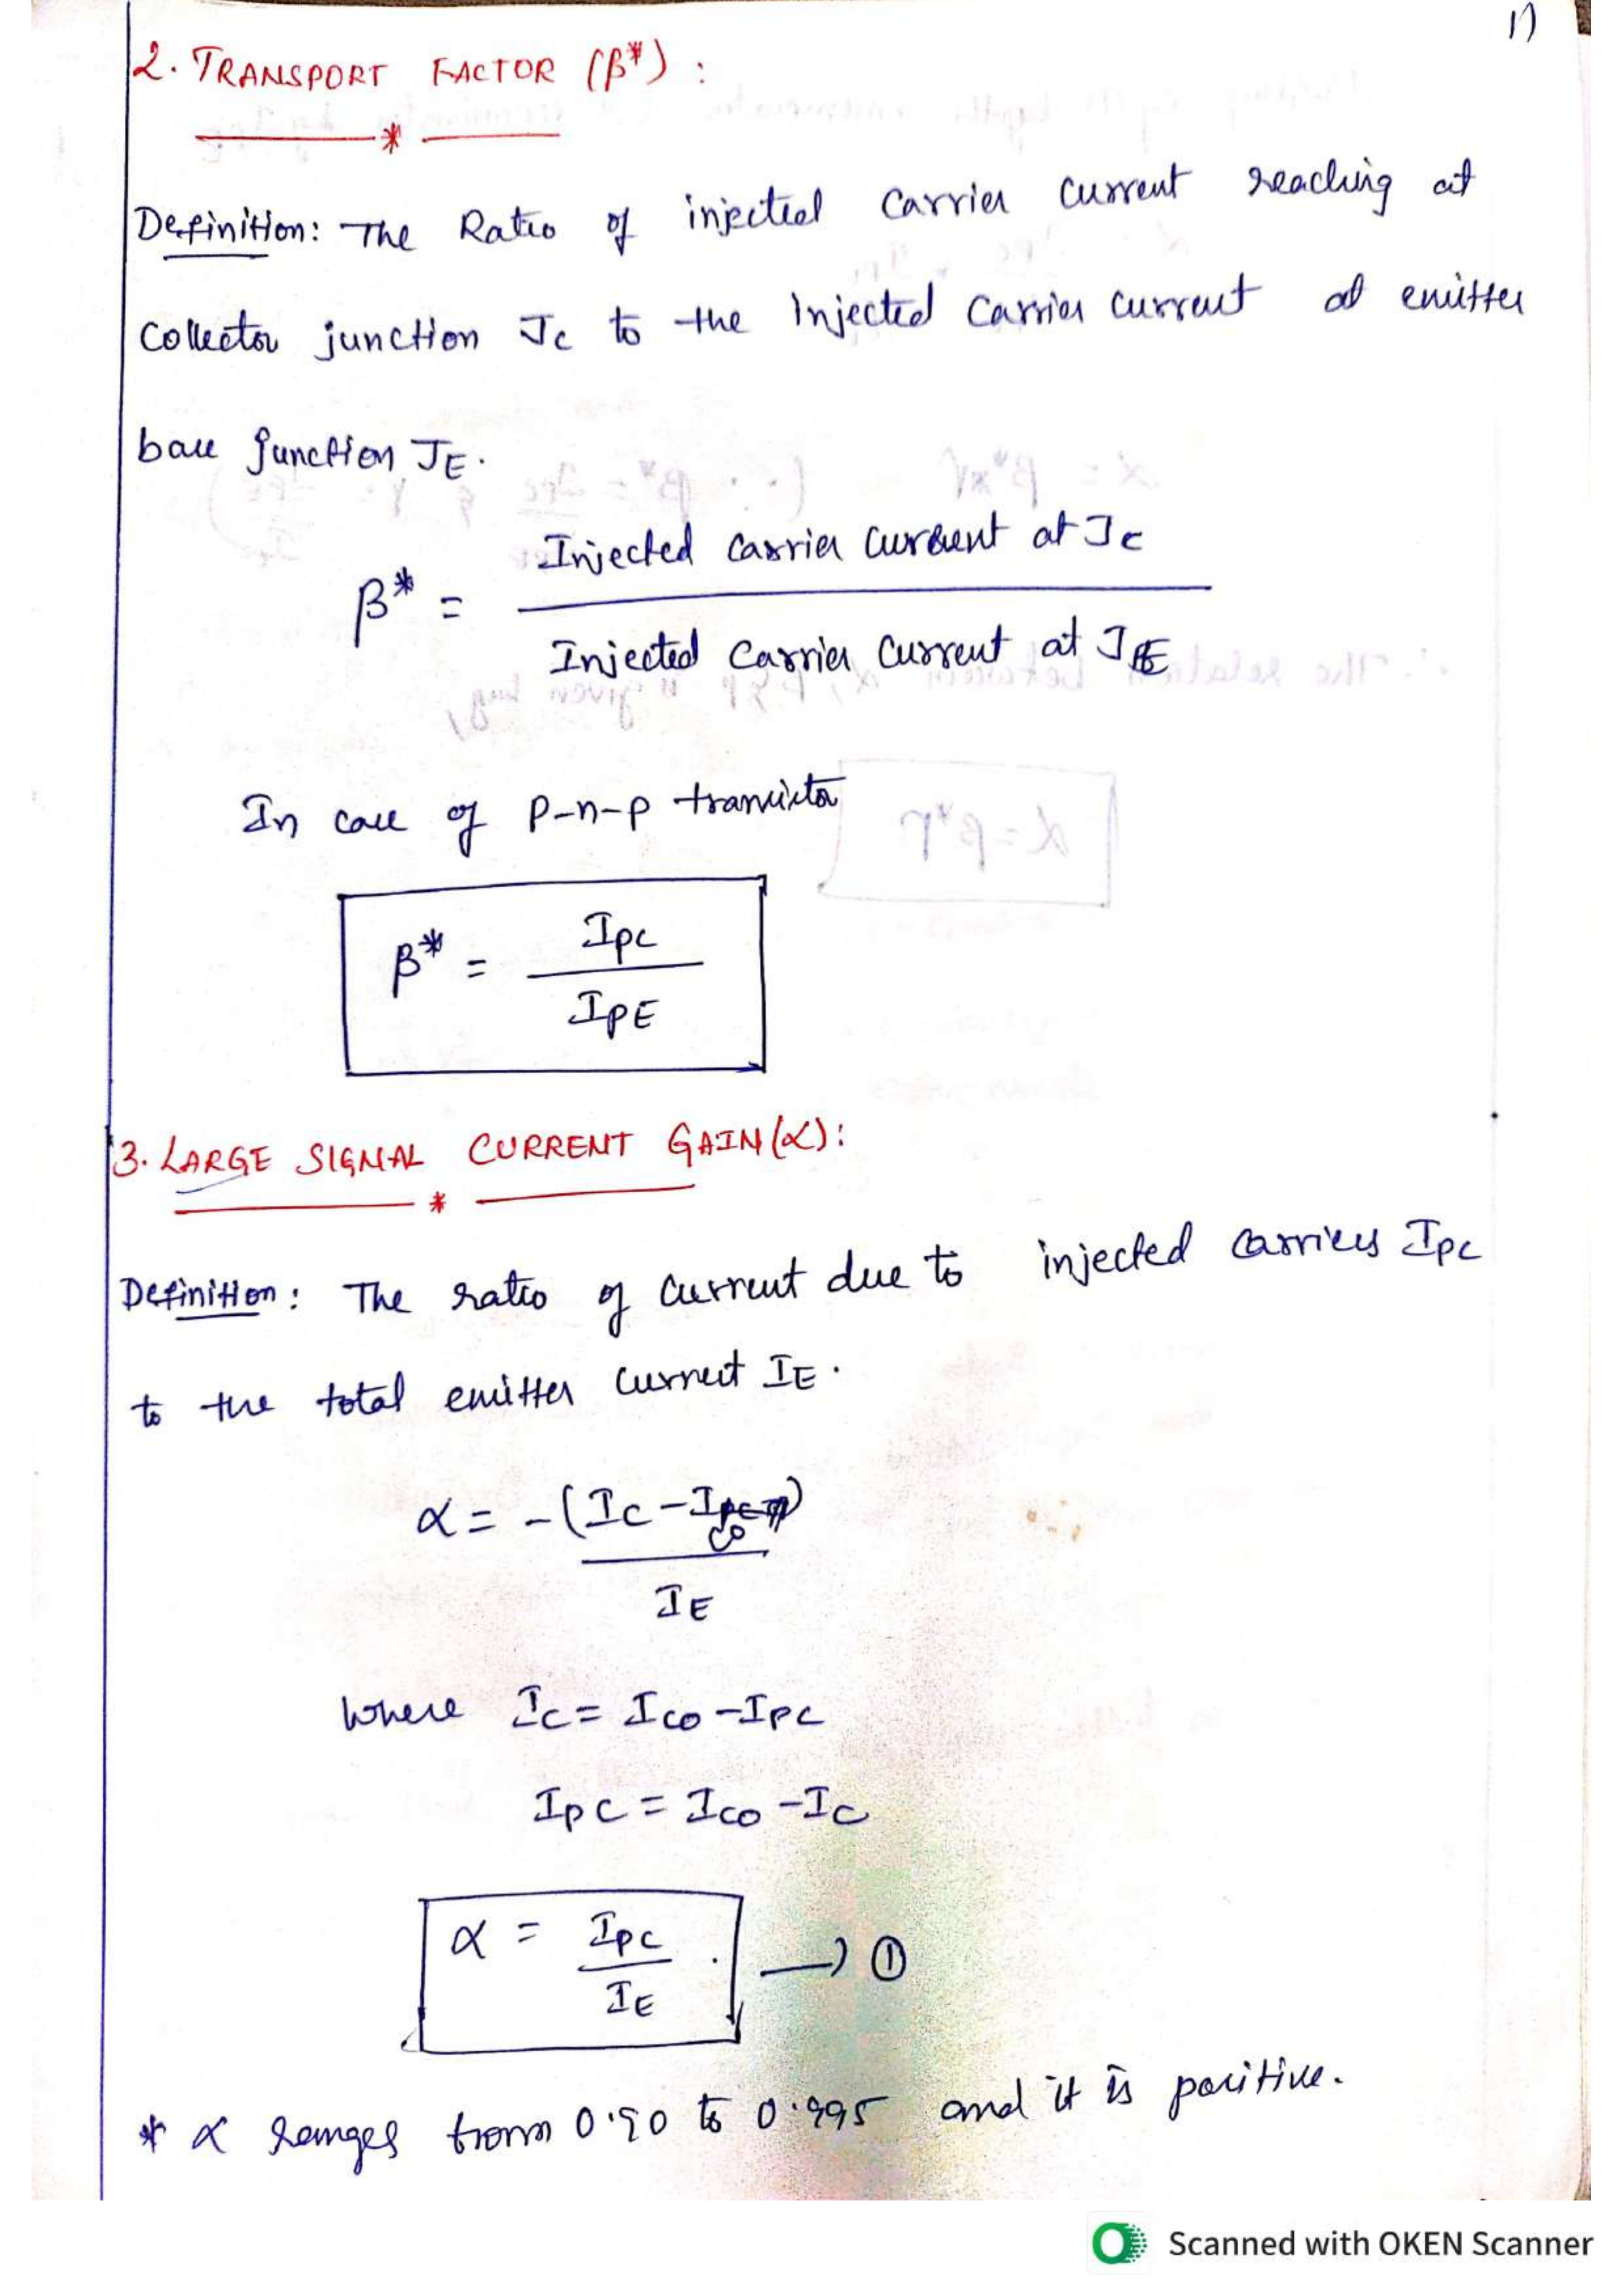 11
2. TRANSPORT FACTOR (β*) :
Definition: The Ratio of injected Carrier Current reaching at
Collector junction Jc to the Injected Carrier Current at emitter
base junction JE.
β* = Injected Carrier Current at Jc
Injected Carrier Current at JE
In case of p-n-p transistor
β* = IpC
IpE
3. LARGE SIGNAL CURRENT GAIN (α):
Definition: The ratio of Current due to injected Carriers IpC
to the total emitter Current IE.
α = -(IC - ICO)
IE
Where IC = ICO - IPC
IPC = ICO - IC
α = IPC . → ①
IE
* α ranges from 0.90 to 0.995 and it is positive.
Scanned with OKEN Scanner